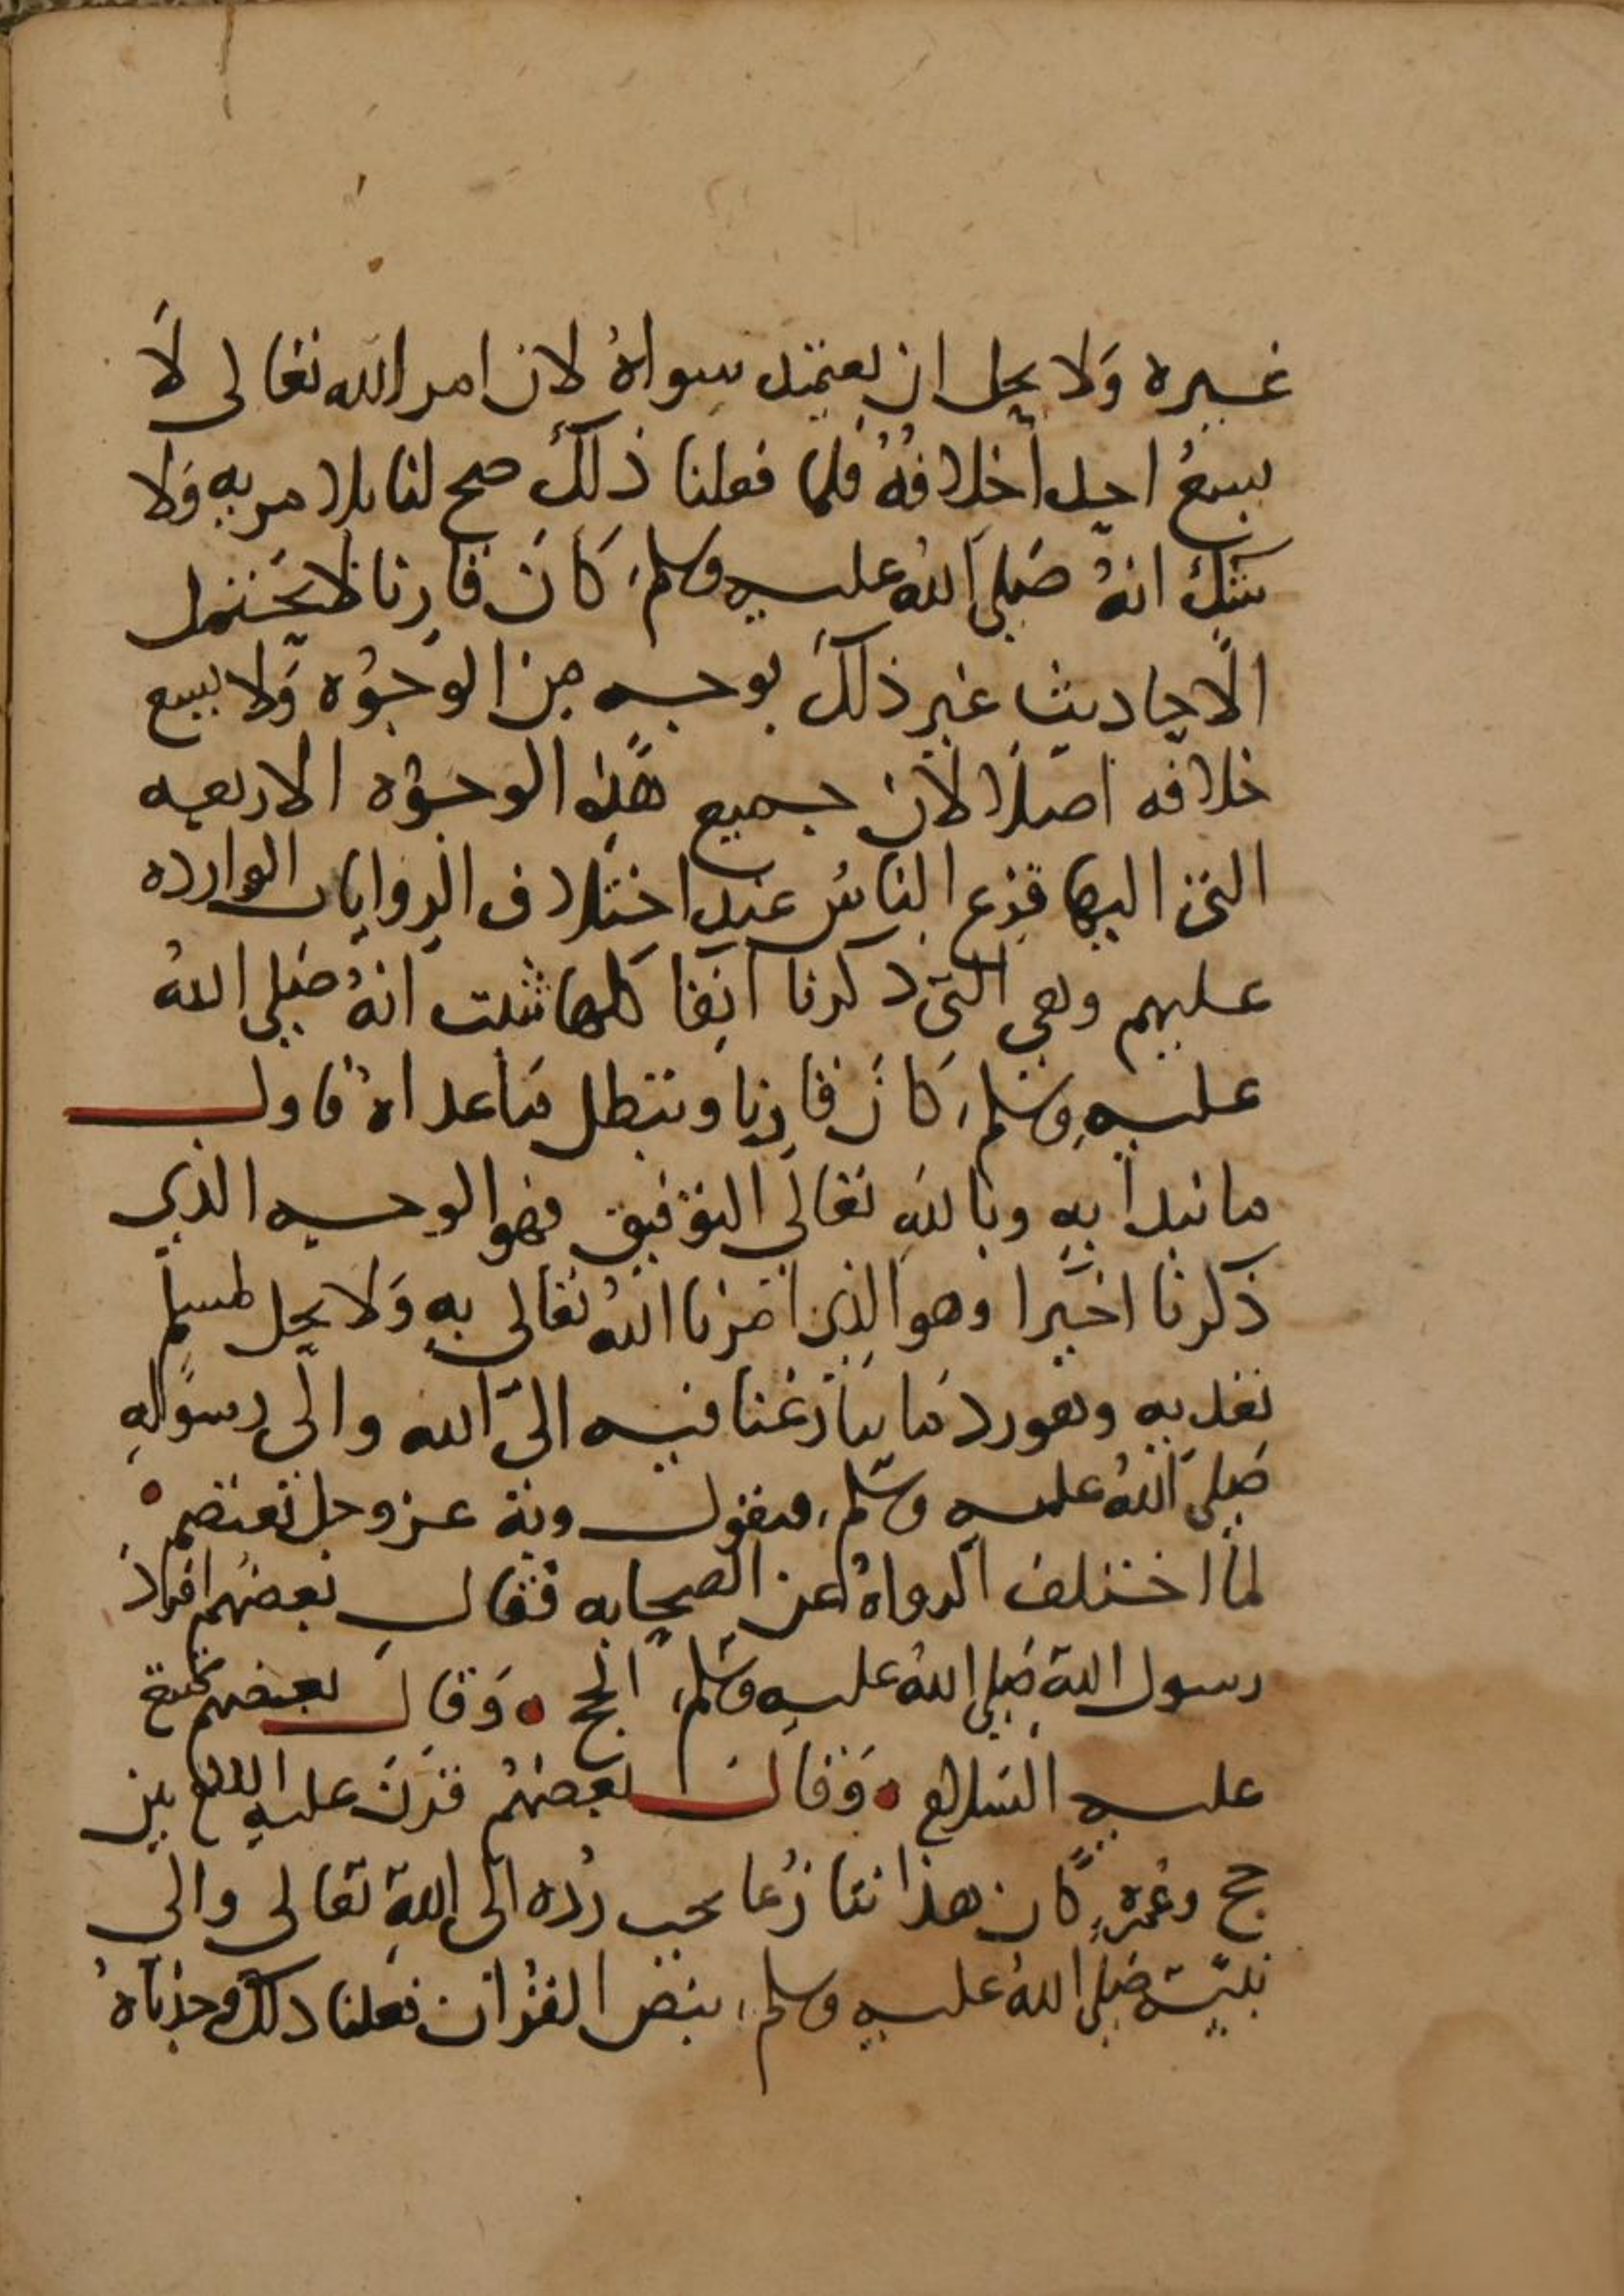 غيره وَلا يحل ان يعتمد سواهُ لان امر الله تعالى لَا
يسعُ احدا خلافهُ فلما فعلنا ذلكَ صح لنا بلا مريه وَلا
شك انهُ صَلى اللهُ عليه وسلم كَانَ قارنا لا يحتمل
الاحاديث غير ذلكَ بوجه من الوجوُه وَلا يسع
خلافه اصلا لان جميع هذه الوجوه الاربعه
التى اليها فزع الناس عند اختلاف الروايات الوارده
عليهم وهي التى ذكرنا آنفا كلها تثبت انهُ صَلى اللهُ
عليه وسلم كَانَ قارنا وتبطل ما عداهُ فاول
ما نبدا به وبالله تعالى التوفيق فهو الوجه الذي
ذكرنا اخيرا وهو الذى امرنا اللهُ تعالى به وَلا يحل لمسلم
تعديه وهو رد ما تنازعنا فيه الى الله والى رسوله
صَلى اللهُ عليه وسلم، فنقول وبه عز وجل نعتصم
لما اختلف الرواةُ عن الصحابه فقال بعضهم افرد
رسول الله صَلى اللهُ عليه وسلم الحج وَقال بعضهم تمتع
عليه السلام وَقال بعضهُم قرنَ عليه السلم بين
حج وعُمره كان هذا تنازُعا يجب رُده الى الله تعالى والى
نبيه صَلى اللهُ عليه وسلم، بنص القُرآن ففعلنا ذلك فوجدناهُ